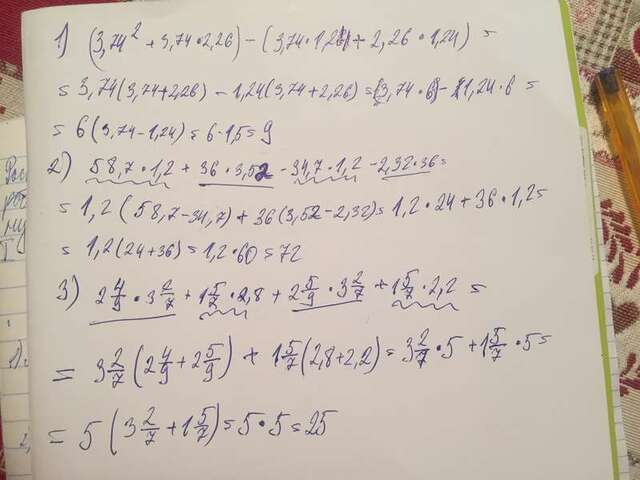 1) (3,74² + 3,74 · 2,26) - (3,74 · 1,24 + 2,26 · 1,24) =
= 3,74(3,74+2,26) - 1,24(3,74+2,26) = 3,74 · 6 - 1,24 · 6 =
= 6(3,74-1,24) = 6 · 1,5 = 9
2) 58,7 · 1,2 + 36 · 3,52 - 34,7 · 1,2 - 2,32 · 36 =
= 1,2(58,7-34,7) + 36(3,52-2,32) = 1,2 · 24 + 36 · 1,2 =
= 1,2(24+36) = 1,2 · 60 = 72
3) 2 4/9 · 3 2/7 + 1 5/7 · 2,8 + 2 5/9 · 3 2/7 + 1 5/7 · 2,2 =
= 3 2/7 (2 4/9 + 2 5/9) + 1 5/7 (2,8+2,2) = 3 2/7 · 5 + 1 5/7 · 5 =
= 5 (3 2/7 + 1 5/7) = 5 · 5 = 25